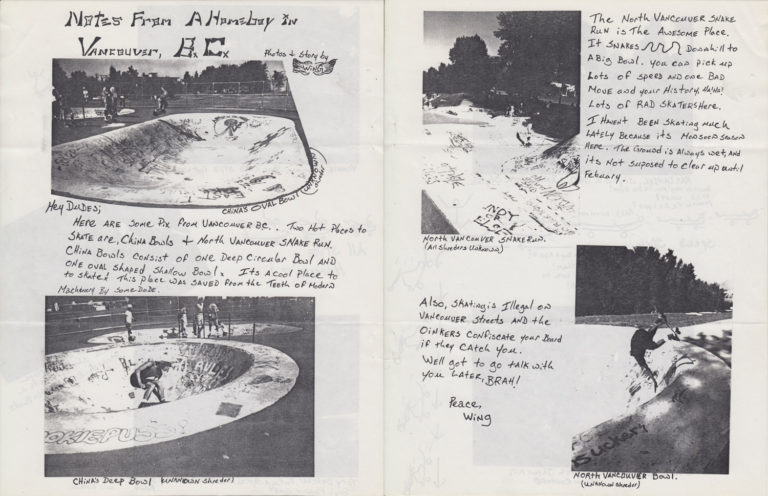 Notes From A Homeboy In
Vancouver, B.C.
Photos & Story by
Wing
China's Oval Bowl (unknown
shreder)
Hey Dudes;
Here are some Pix from Vancouver BC... Two Hot Places to
Skate are, China Bowls & North Vancouver Snake Run.
China Bowls consist of one Deep Circular Bowl and
one oval shaped shallow Bowl. Its a cool place to
to skate! This place was saved from the Teeth of Modern
Machenery By some Dude.
China's Deep Bowl (unknown shreder)
The North Vancouver Snake
Run is The Awesome Place.
It Snakes Downhill to
A Big Bowl. You can pick up
Lots of speed and one Bad
Move and your History, Ha! Ha!
Lots of RAD skaters Here.
I havent Been skating much
Lately Because its Monsoon Season
Here. The Ground is Always wet, and
its Not suposed to clear up until
Febuary.
INDY
North Vancouver Snake Run.
(All Shreders Unknown)
Also, Skating is Illegal on
Vancouver Streets and the
Oinkers confiscate your Board
if they catch you.
Well got to go talk with
you Later, BRAH!
Peace,
Wing
North Vancouver Bowl.
(unknown shreder)